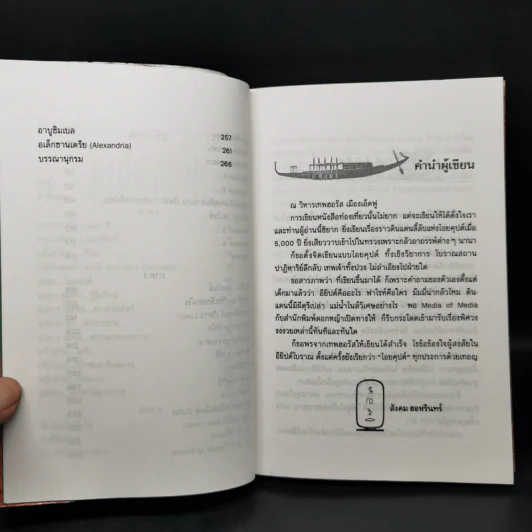 อาบูซิมเบล 257
อเล็กซานเดรีย (Alexandria) 261
บรรณานุกรม 266
คำนำผู้เขียน
ณ วิหารเทพฮอรัส เมืองเอ็ดฟู
การเขียนหนังสือท่องเที่ยวนั้นไม่ยาก แต่จะเขียนให้ได้ดั่งใจเรา
และท่านผู้อ่านนี่ซิยาก ยิ่งเขียนเรื่องราวดินแดนลี้ลับแห่งไอยคุปต์เมื่อ
5,000 ปี ยิ่งเสียววาบเข้าไปในทรวงเพราะกลัวอาถรรพ์ต่าง ๆ นานา
ก็ขอตั้งจิตเขียนแบบไอยคุปต์ ทั้งเชิงวิชาการ โบราณสถาน
ปาฏิหาริย์ลึกลับ เทพเจ้าทั้งปวง ไม่ลำเอียงไปฝ่ายใด
ขอสารภาพว่า ที่เขียนขึ้นมาได้ ก็เพราะคำถามของตัวเองตั้งแต่
เด็กมาแล้วว่า อียิปต์คืออะไร ฟาโรห์คือใคร มัมมี่น่ากลัวไหม ดิน
แดนนี้มีผีดุรึเปล่า แม่น้ำไนล์วิเศษอย่างไร พอ Media of Media
กับสำนักพิมพ์ดอกหญ้าเปิดทางให้ ก็รีบกระโดดเข้ามารับเรื่องพิศวง
งงงวยเหล่านี้ทันทีและทันใด
ก็ขอพรจากเทพฮอรัสให้เขียนได้สำเร็จ ไขข้อข้องใจผู้สงสัยใน
อียิปต์โบราณ ตั้งแต่ครั้งยังเรียกว่า "ไอยคุปต์" ทุกประการด้วยเทอญ
สังคม ฮอหรินทร์